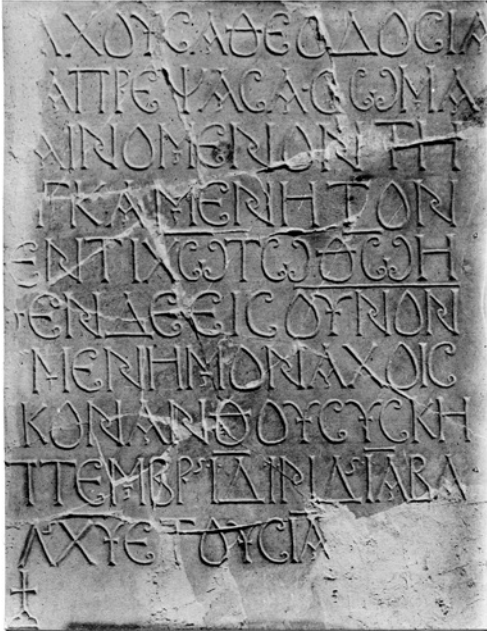 ΑΧΟΥϹΑΘΕΟΔΟϹΙΑ
ΑΠΡΕΨΑϹΑ·ϹΩΜΑ
ΑΙΝΟΜΕΝΟΝΤΗ
ΓΚΑΜΕΝΗΤΟΝ
ΕΝΤΙΧΩΤΩΘΩΗ
ΕΝΔΕΕΙϹΟΥΝΟΝ
ΜΕΝΗΜΟΝΑΧΟΙϹ
ΚΟΝΑΝΘΟΥϹΥϹΚΗ
ΠΤΕΜΒΡΙΔΙΝΔΙΑΒΑ
ΑΧΥΕΤΟΥϹΙΑ